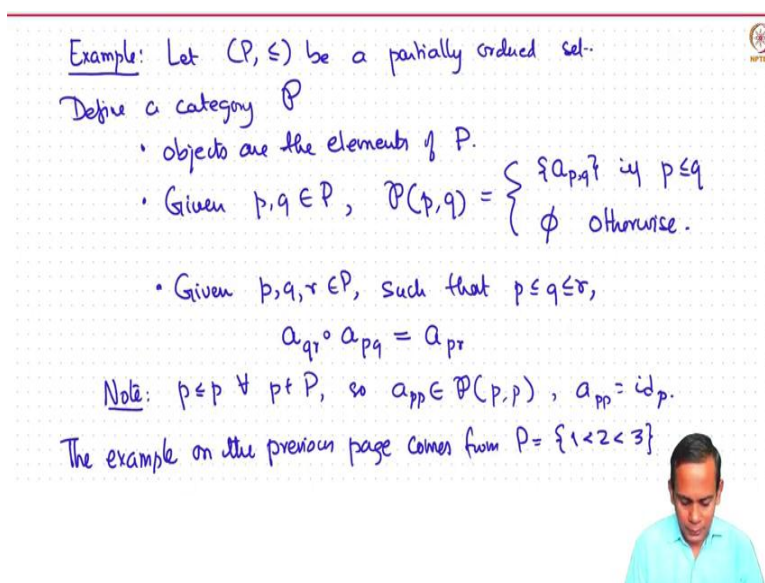 Example: Let (P, ≤) be a partially ordered set.
Define a category 𝒫
• objects are the elements of P.
• Given p,q ∈ P, 𝒫(p,q) = { {a_{p,q}} if p≤q
∅ otherwise.
• Given p,q,r ∈ P, such that p≤q≤r,
a_{qr} ∘ a_{pq} = a_{pr}
Note: p≤p ∀ p∈P, so a_{pp} ∈ 𝒫(p,p), a_{pp} = id_p.
The example on the previous page comes from P = {1<2<3}
NPTEL